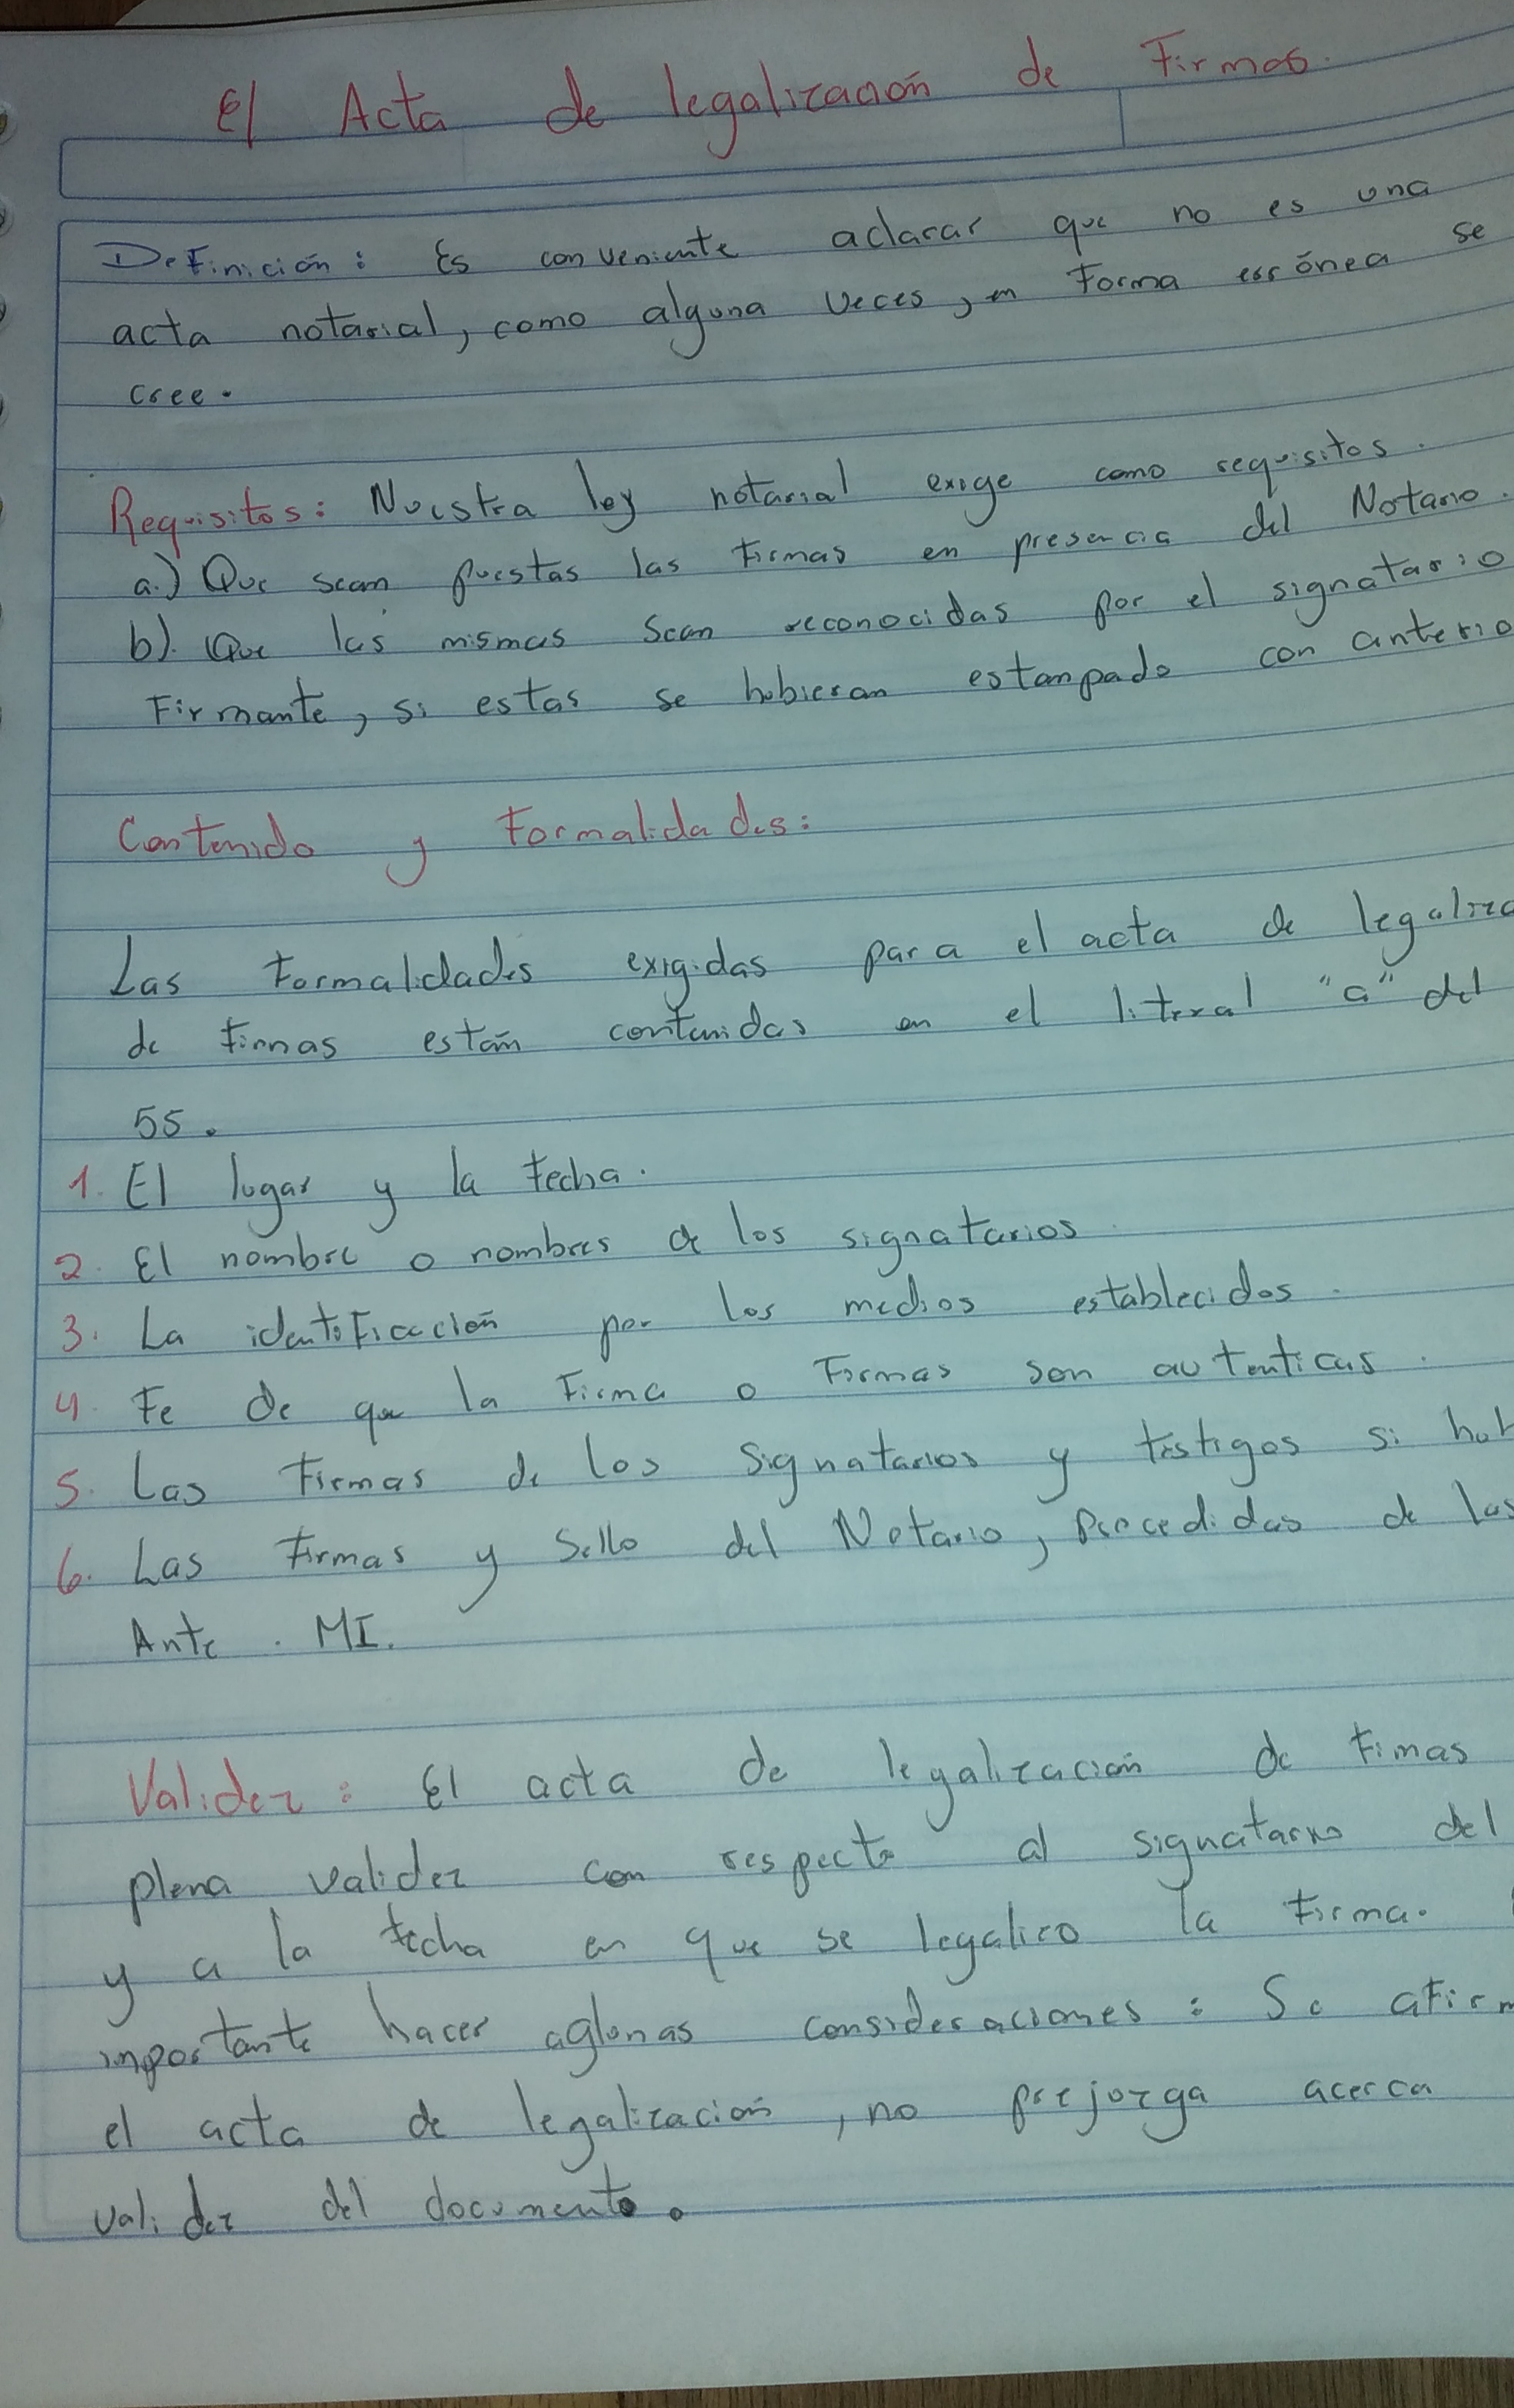 El Acta de legalización de Firmas.
Definición: Es conveniente aclarar que no es una
acta notarial, como alguna veces, en Forma errónea se
cree.
Requisitos: Nuestra ley notarial exige como requisitos.
a.) Que sean puestas las firmas en presencia del Notario.
b). Que las mismas sean reconocidas por el signatario
Firmante, si estas se hubieran estampado con anterio
Contenido y Formalidades:
Las Formalidades exigidas para el acta de legaliza
de firmas están contenidas en el literal "a" del
55.
1. El lugar y la fecha.
2. El nombre o nombres de los signatarios.
3. La identificación por los medios establecidos.
4. Fe de que la Firma o Firmas son autenticas.
5. Las Firmas de los signatarios y testigos si hub
6. Las Firmas y Sello del Notario, precedidas de las
Ante MI.
Validez: El acta de legalización de fimas
plena validez con respecto al signatario del
y a la fecha en que se legalizo la firma.
importante hacer aglunas consideraciones: Se afirm
el acta de legalización, no prejuzga acerca
validez del documento.